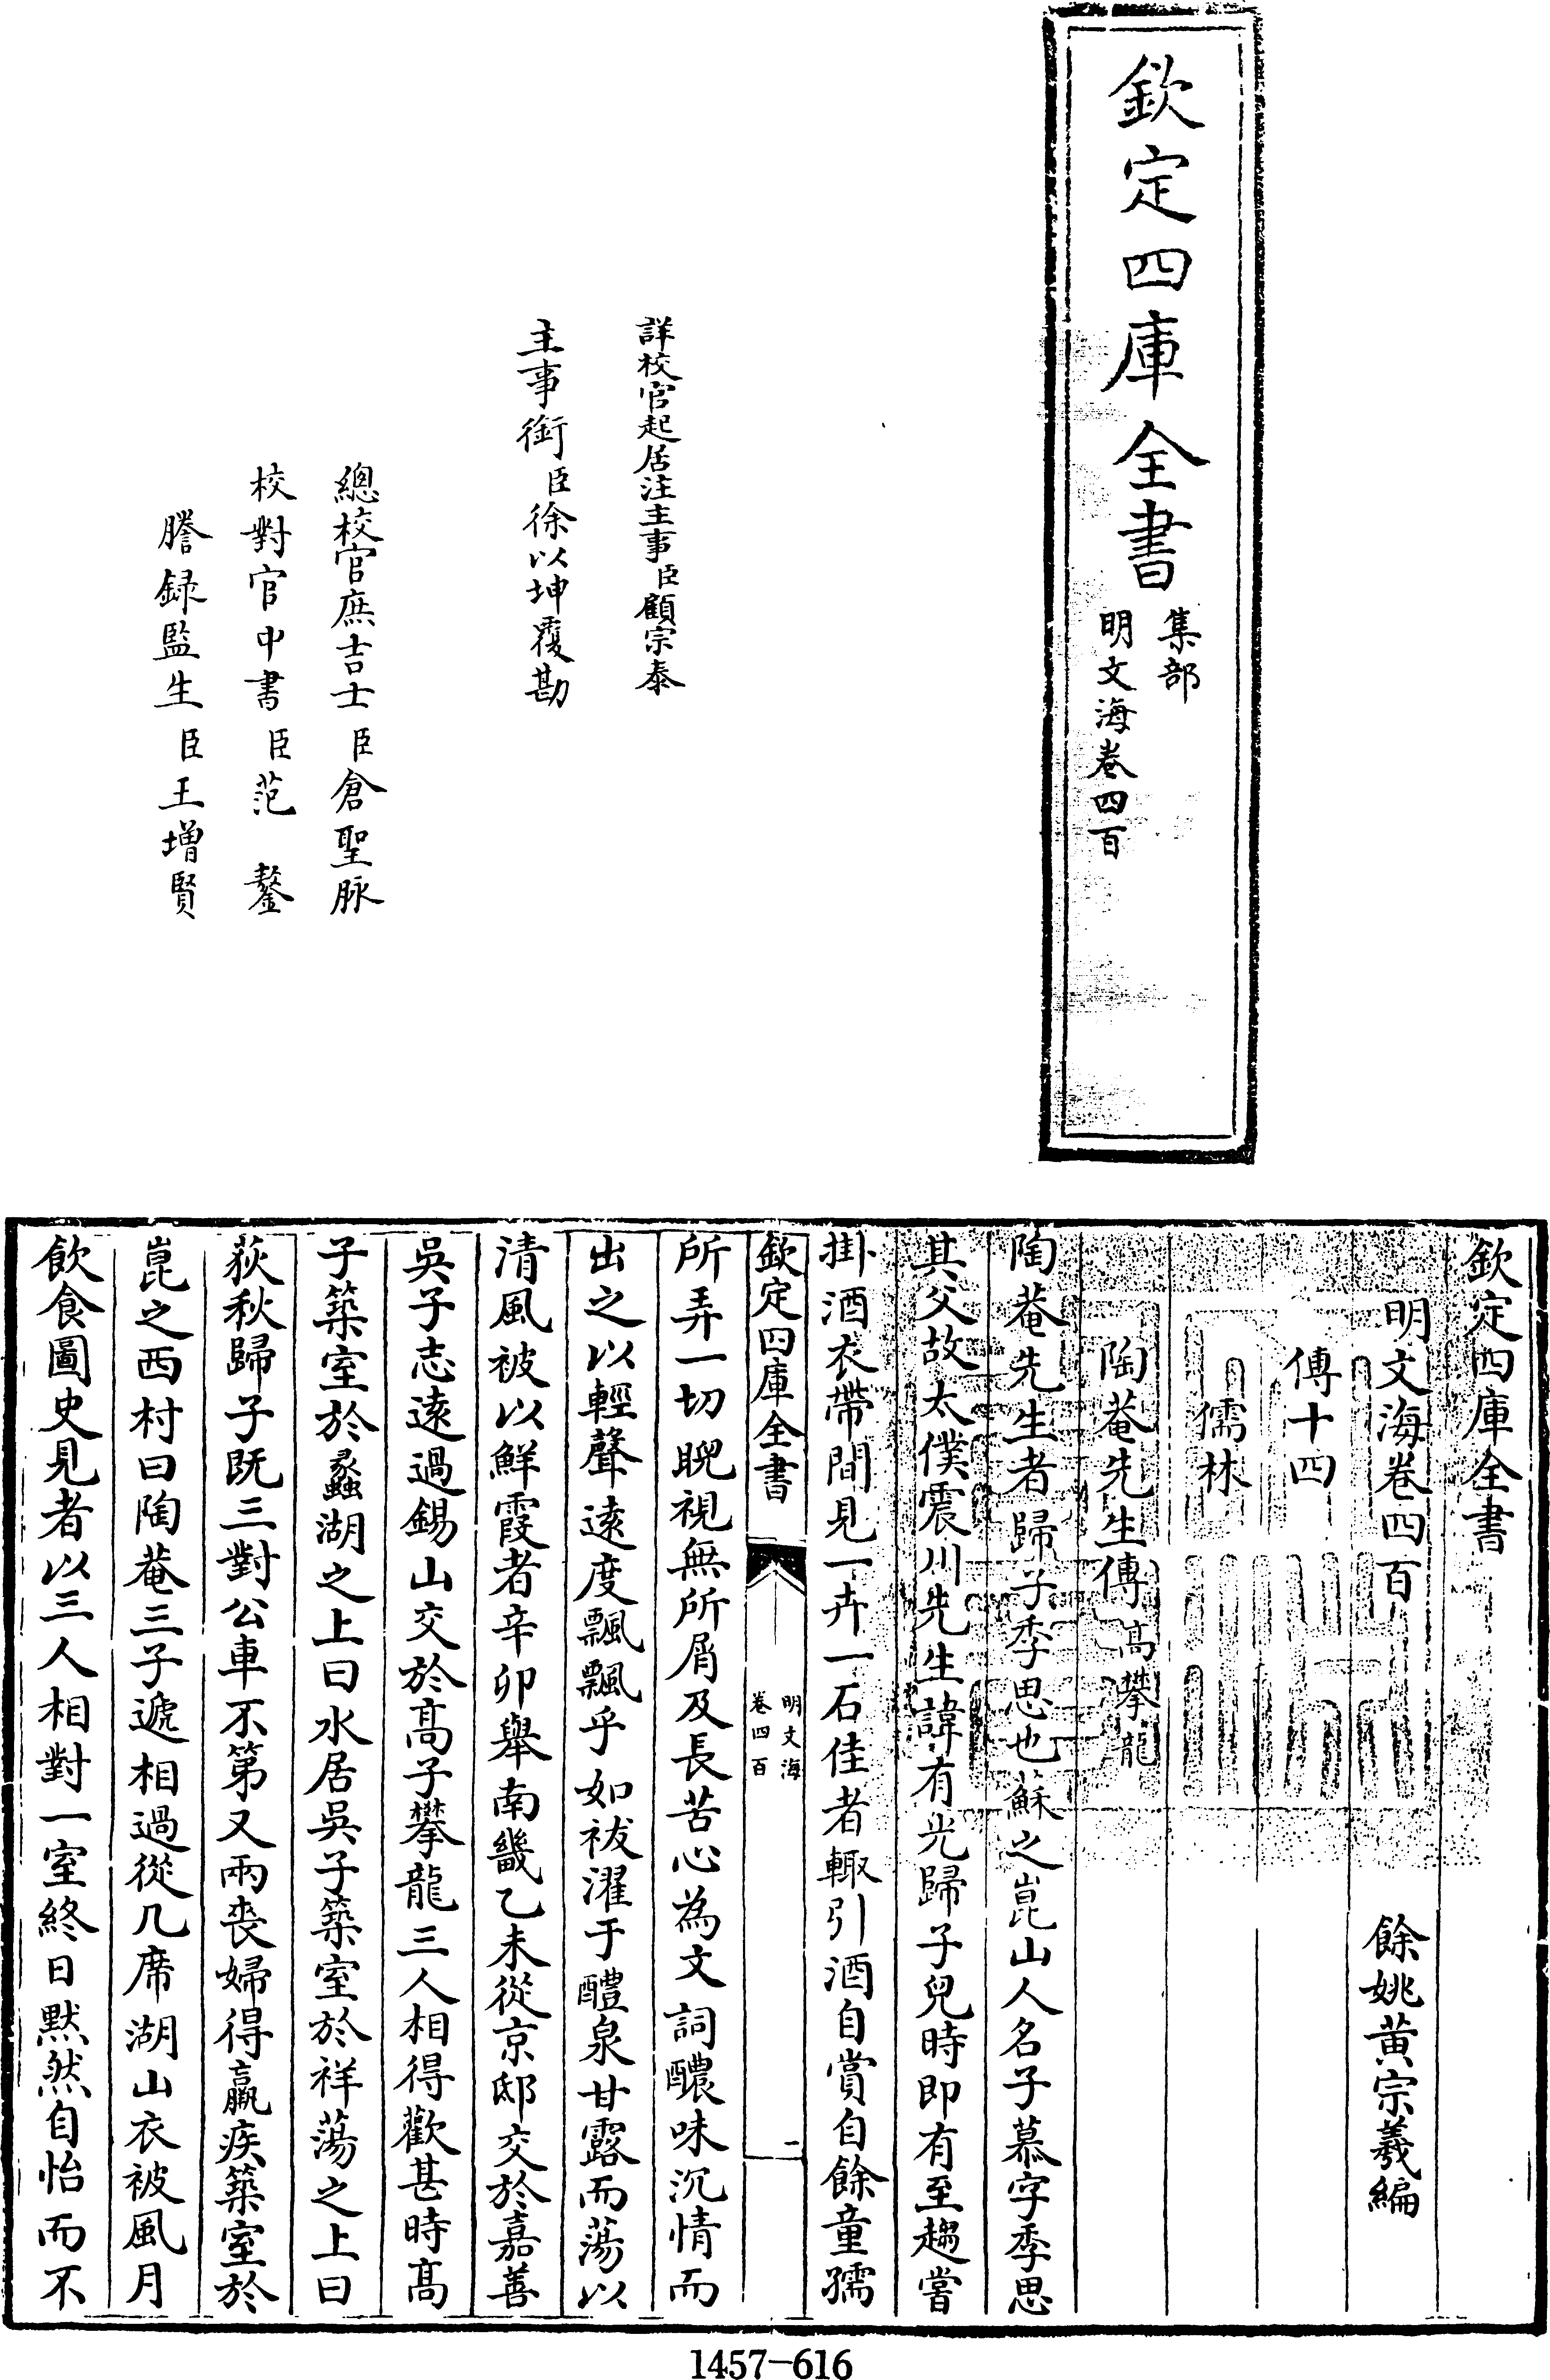 欽定四庫全書
集部
明文海卷四百
詳校官起居注主事臣顧宗泰
主事銜臣徐以坤覆勘
總校官庶吉士臣倉聖脉
校對官中書臣范鏊
謄録監生臣王增賢
欽定四庫全書
明文海卷四百
餘姚黃宗羲編
傳十四
儒林
陶菴先生傳高攀龍
陶菴先生者歸子季思也蘇之崑山人名子慕字季思
其父故太僕震川先生諱有光歸子兒時即有至趣嘗
掛酒衣帶間見一卉一石佳者輙引酒自賞自餘童孺
欽定四庫全書
明文海
卷四百
二
所弄一切睨視無所屑及長苦心為文詞醲味沉情而
出之以輕聲遠度飄飄乎如祓濯于醴泉甘露而蕩以
清風被以鮮霞者辛卯舉南畿乙未從京邸交於嘉善
吳子志遠過錫山交於髙子攀龍三人相得歡甚時髙
子築室於蠡湖之上曰水居吳子築室於祥蕩之上曰
荻秋歸子既三對公車不第又兩喪婦得羸疾築室於
崑之西村曰陶菴三子遞相過從几席湖山衣被風月
飲食圖史見者以三人相對一室終日黙然自怡而不
1457-616